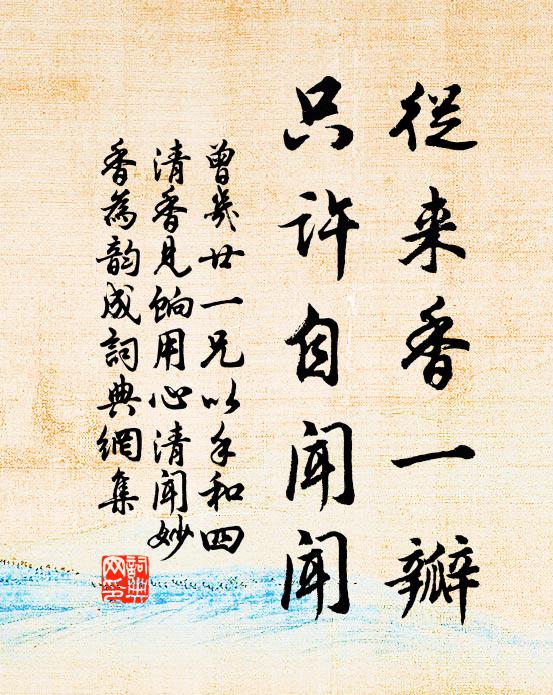 從来香一瓣
只許自聞聞
曾幾廿一兄以手和四
清香見餉用心清聞妙
香為韵成詞典網集